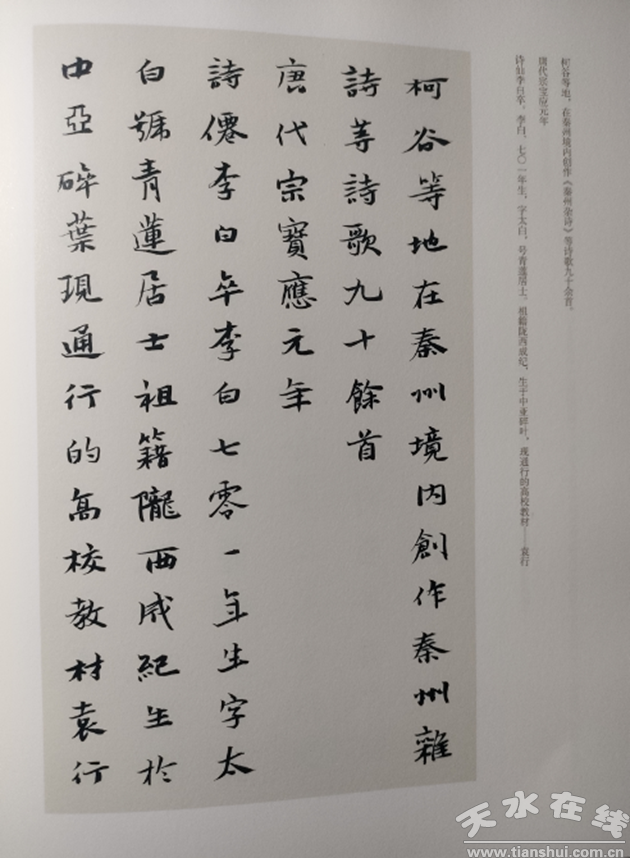 柯谷等地，在秦州境内创作《秦州杂诗》等诗歌九十余首。
唐代宗宝应元年
诗仙李白卒，李白，七〇一年生，字太白，号青莲居士，祖籍陇西成纪，生于中亚碎叶，现通行的高校教材——袁行
柯谷等地在秦州境内創作秦州雜
詩等詩歌九十餘首
唐代宗寶應元年
詩僊李白卒李白七零一年生字太
白號青蓮居士祖籍隴西成紀生於
中亞碎葉現通行的高校教材袁行
天水在线
www.tianshui.com.cn